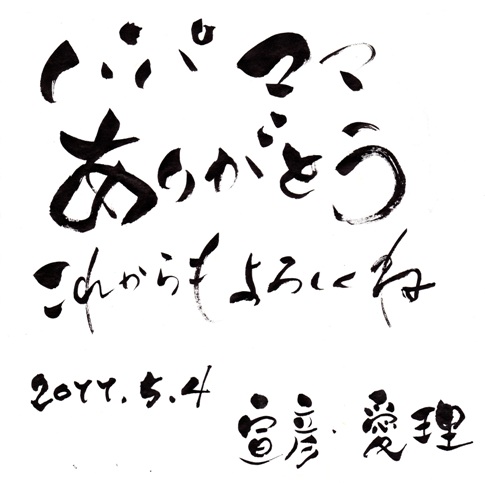 パパ ママ
ありがとう
これからもよろしくね
2011.5.4
宣彦・愛理